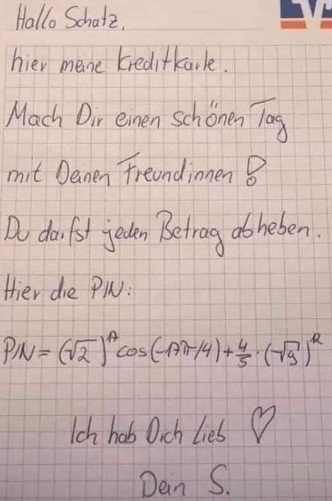 Hallo Schatz,
hier meine Kreditkarte.
Mach Dir einen schönen Tag
mit Deinen Freundinnen!
Du darfst jeden Betrag abheben.
Hier die PIN:
PIN = (√2)^A cos(-Aπ/4) + 4/5 · (-√9)^R
Ich hab Dich lieb ♡
Dein S.